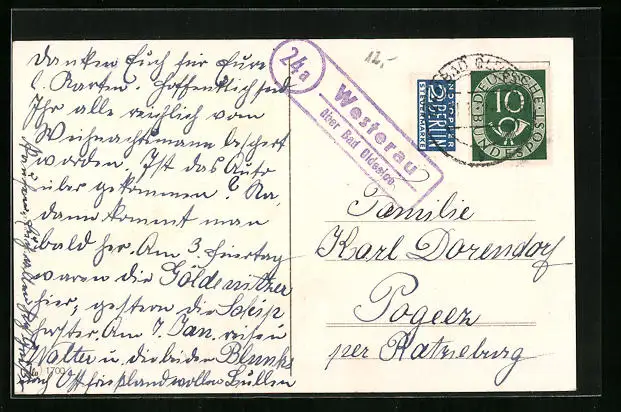 danken Euch für Eure
l. Karten. Hoffentlich seid
Ihr alle reichlich vom
Weihnachtsmann beschert
worden. Ist das Auto
über gekommen? Na,
dann kommt man
bald her. Am 3. Feiertag
waren die Göldenitzer
hier, gestern die
Am 7. Jan. reisen
Walter u. die beiden Blunks
nach Ostfriesland wollen Bullen
1700
24a
Westerau
über Bad Oldesloe
12,-
NOTOPFER
2 BERLIN
STEUERMARKE
BAD OLDESLOE
DEUTSCHE
BUNDESPOST
10
Familie
Karl Dorendorf
Pogeez
per Ratzeburg